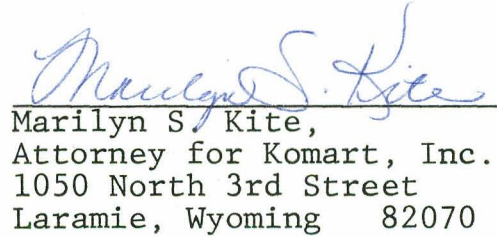 Marilyn S. Kite
Marilyn S. Kite,
Attorney for Komart, Inc.
1050 North 3rd Street
Laramie, Wyoming 82070